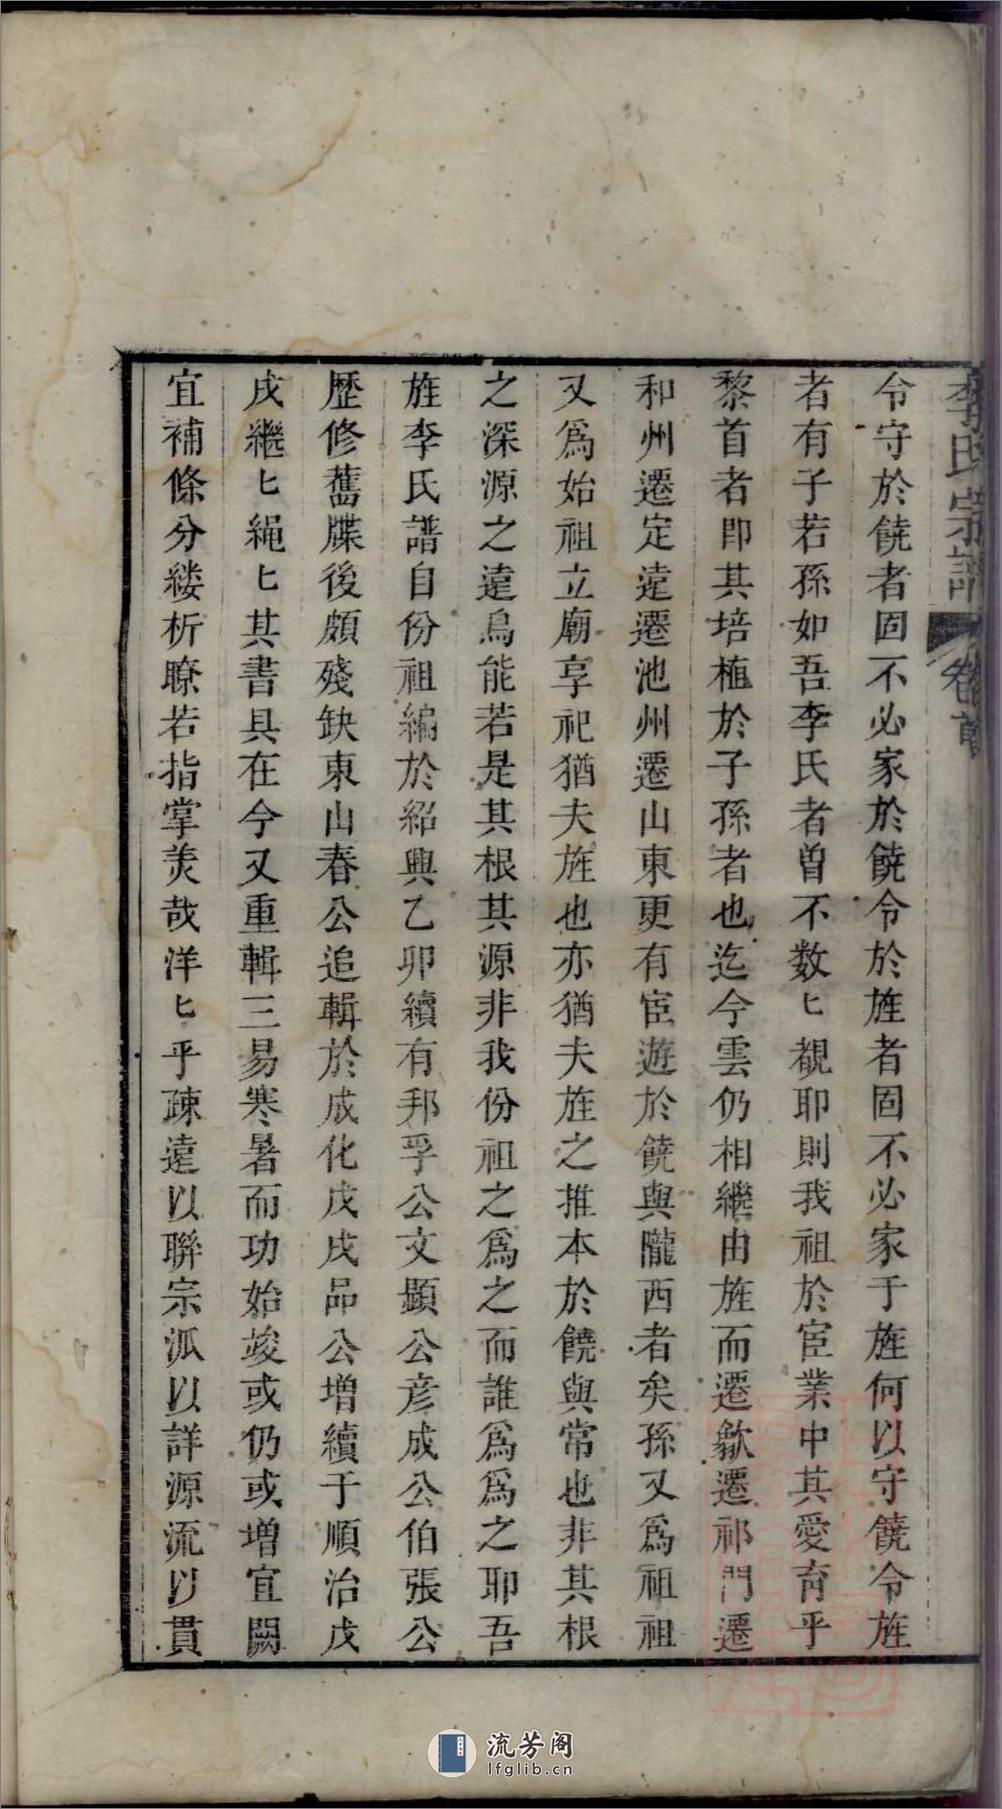 李氏宗譜 卷首
令守於饒者固不必家於饒令於旌者固不必家于旌何以守饒令旌
者有子若孫如吾李氏者曽不数匕覩耶則我祖於宦業中其愛育乎
黎首者即其培植於子孫者也迄今雲仍相繼由旌而遷歙遷祁門遷
和州遷定逺遷池州遷山東更有宦遊於饒與隴西者矣孫又爲祖祖
又爲始祖立廟享祀猶夫旌也亦猶夫旌之推本於饒與常也非其根
之深源之逺烏能若是其根其源非我份祖之爲之而誰爲爲之耶吾
旌李氏譜自份祖編於紹興乙卯續有邦孚公文顯公彦成公伯張公
歴修舊牒後頗殘缺東山春公追輯於成化戊戌嵓公増續于順治戊
戌繼匕繩匕其書具在今又重輯三易寒暑而功始竣或仍或増宜闕
宜補條分縷析瞭若指掌羙哉洋匕乎疎逺以聨宗派以詳源流以貫
流芳阁
lfglib.cn